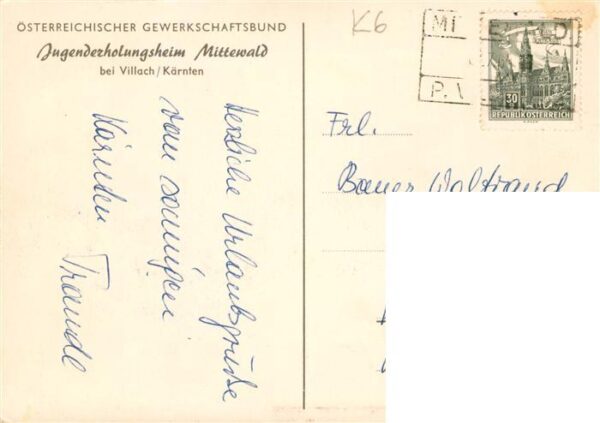 ÖSTERREICHISCHER GEWERKSCHAFTSBUND
Jugenderholungsheim Mittewald
bei Villach/Kärnten
Herzliche Urlaubsgrüße
vom sonnigen
Kärnten Traude
K6
MI
P.
30
REPUBLIK ÖSTERREICH
Frl.
Bauer Waltraud